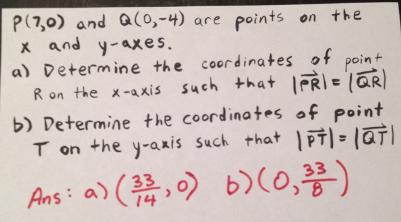 P(7,0) and Q(0,-4) are points on the
x and y-axes.
a) Determine the coordinates of point
R on the x-axis such that |PR⃗| = |QR⃗|
b) Determine the coordinates of point
T on the y-axis such that |PT⃗| = |QT⃗|
Ans: a) (33/14, 0) b) (0, 33/8)